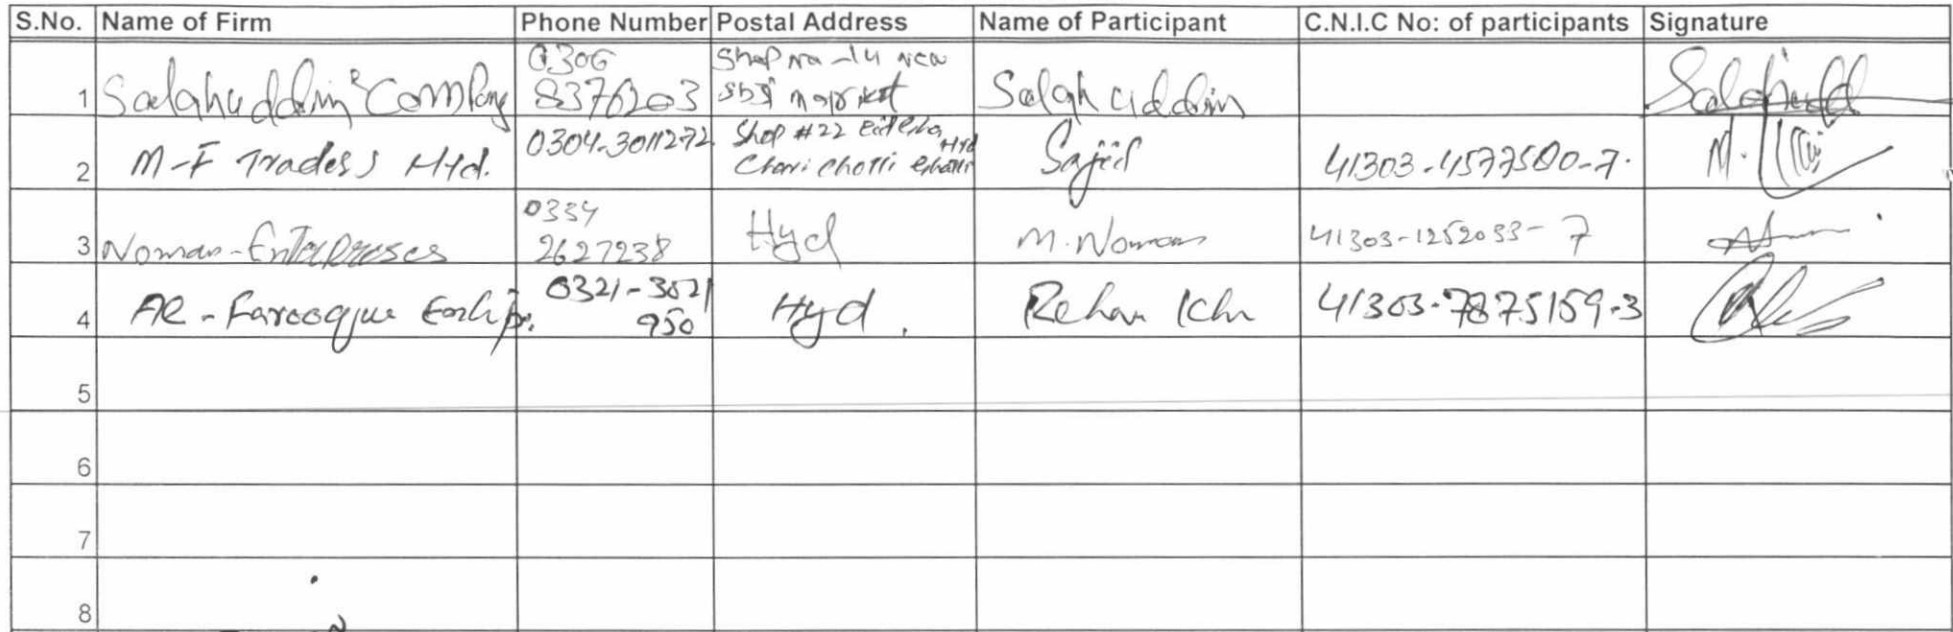 S.No. Name of Firm Phone Number Postal Address Name of Participant C.N.I.C No: of participants Signature
1 Salahuddin & Company 0306 8376203 Shop no -14 new market Salah uddin
2 M-F Traders Hyd. 0304-3011272 Shop #22 Hyd Sajid 41303-4577500-7.
3 Noman-Enterprises 0334 2627238 Hyd M. Noman 41303-1252033-7
4 AR-Farooque 0321-3021 950 Hyd. Rehan Khn 41303-7875159-3
5
6
7
8